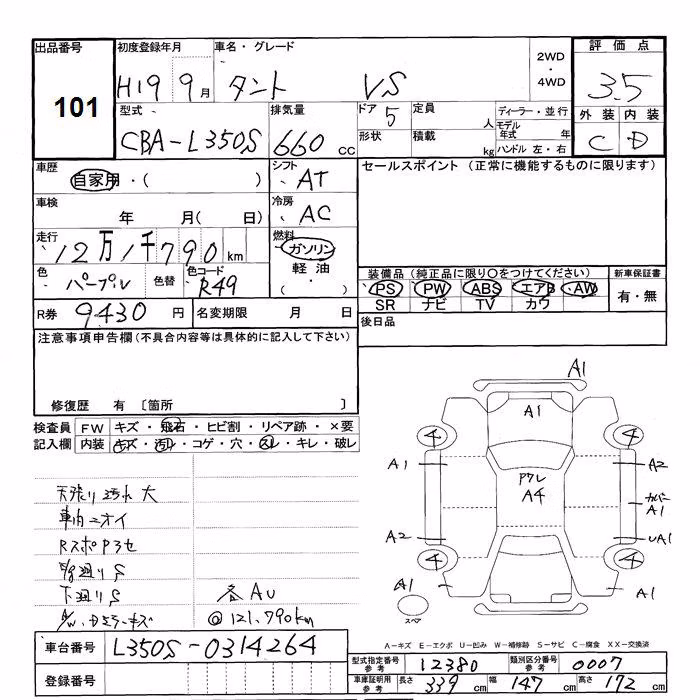 出品番号 初度登録年月 車名・グレード 2WD・4WD 評価点
101 H19 9月 タント VS 3.5
型式 排気量 ドア 5 定員 人 ディーラー・並行 外装 内装
CBA-L350S 660cc 形状 積載 kg モデル年式 年 ハンドル 左・右 C D
車歴 自家用・( ) シフト AT セールスポイント (正常に機能するものに限ります)
車検 年 月( 日) 冷房 AC
走行 12万1千790km 燃料 ガソリン 軽油 ( ・ )
色 パープル 色替 色コード R49
装備品 (純正品に限り○をつけてください) 新車保証書
PS PW ABS エアB AW 有・無
SR ナビ TV カワ
R券 9430円 名変期限 月 日 後日品
注意事項申告欄 (不具合内容等は具体的に記入して下さい)
修復歴 有 〔箇所 〕
検査員記入欄 FW キズ・飛石・ヒビ割・リペア跡・×要
内装 キズ・汚れ・コゲ・穴・スレ・キレ・破レ
天張り汚れ大
車内ニオイ
下廻りS
各AU
@121,790km
A1
A1
4 4
A1 A2
アワレ
A4
カバー
A1
A2 UA1
4 4
A1 A1
スペア
A-キズ E-エクボ U-凹み W-補修跡 S-サビ C-腐食 XX-交換済
車台番号 L350S-0314264
登録番号
型式指定番号 参考 12380 類別区分番号 参考 0007
車庫証明用 参考 長さ 339cm 幅 147cm 高さ 172cm